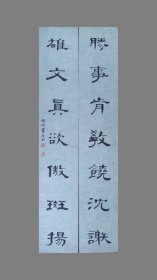 勝事肯教饒沈謝
雄文真欲傲班揚